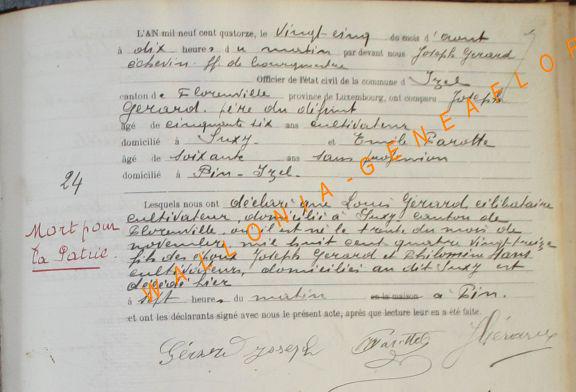 L'AN mil neuf cent quatorze, le vingt-cinq du mois d'aout
à dix heures du matin par devant nous Joseph Gerard
échevin ff de bourgmestre
Officier de l'état civil de la commune d'Izel
canton de Florenville province de Luxembourg, ont comparu Joseph
Gerard. père du défunt
âgé de cinquante six ans cultivateur
domicilié à Suxy et Emile Parotte
âgé de soixante ans sans profession
domicilié à Pin-Izel.
24
Mort pour
la Patrie.
Lesquels nous ont déclaré que Louis Gérard célibataire
cultivateur, domicilié à Suxy canton de
Florenville, où il est né le trente du mois de
novembre mil huit cent quatre vingt treize
fils des époux Joseph Gerard et Philomène
cultivateurs, domiciliés au dit Suxy est
décédé hier
à sept heures du matin en sa maison à Pin.
et ont les déclarants signé avec nous le présent acte, après que lecture leur en a été faite.
Gérard Joseph Parotte JGérard
WALLONIA-GENEALOG